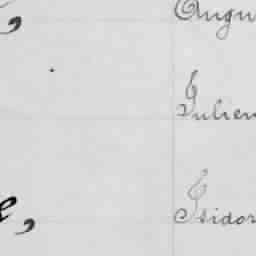 Augu
Julien
e, Isidor